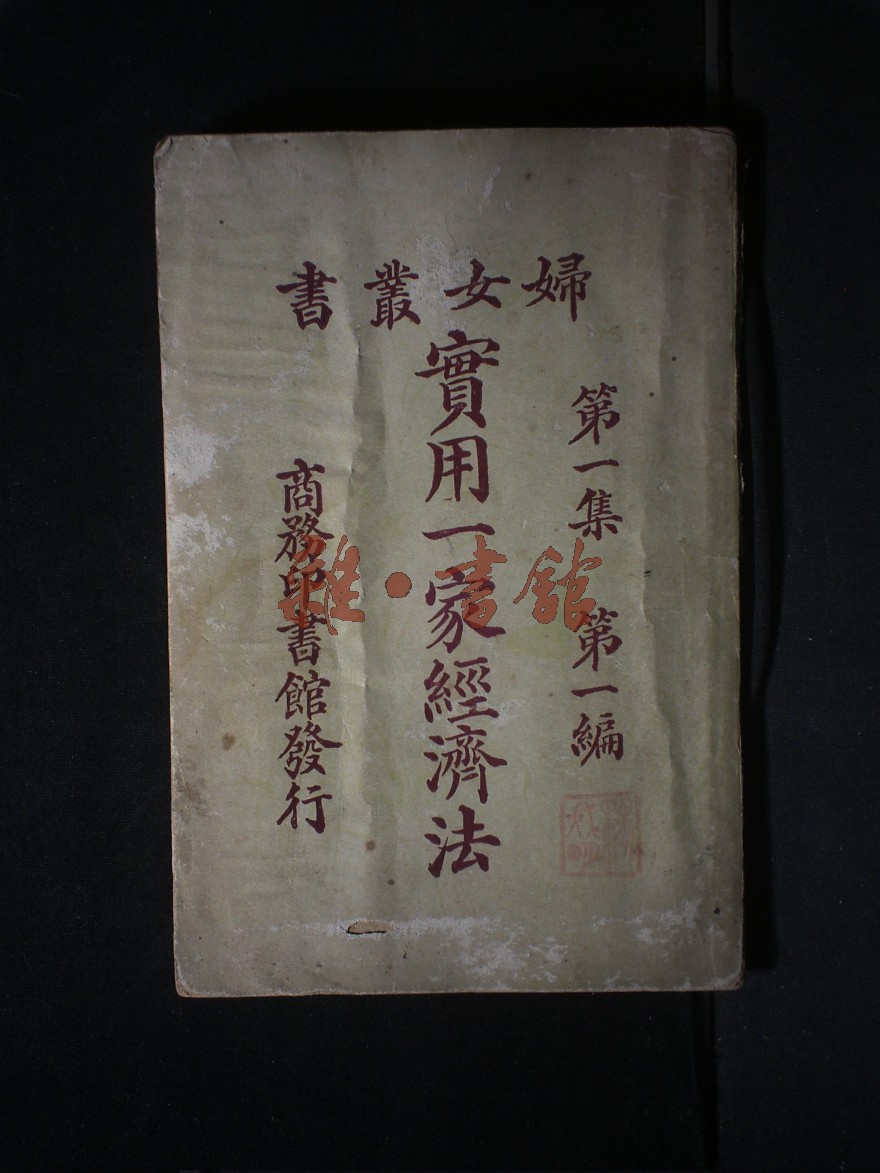 婦女叢書
第一集 第一編
實用一家經濟法
商務印書館發行
雜·書館